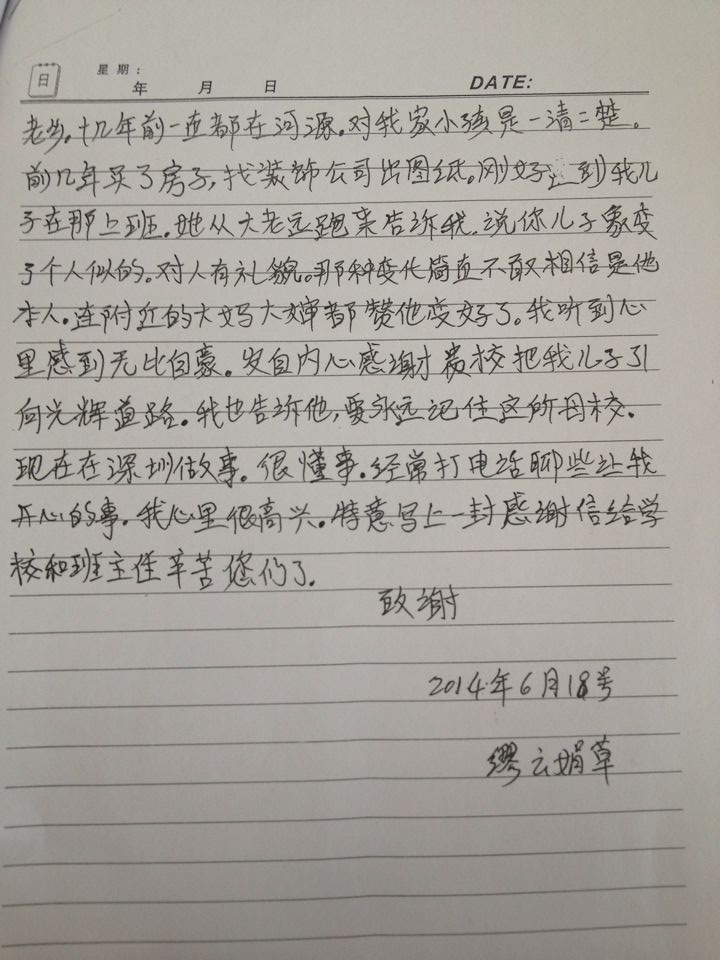 日
星期:
年 月 日 DATE:
老乡。十几年前一直都在河源。对我家小孩是一清二楚。
前几年买了房子,找装饰公司出图纸。刚好 到我儿
子在那上班。她从大老远跑来告诉我。说你儿子象变
了个人似的。对人有礼貌。那种变化简直不敢相信是他
本人。连附近的大妈大婶都赞他变好了。我听到心
里感到无比自豪。发自内心感谢贵校把我儿子引
向光辉道路。我也告诉他,要永远记住这所母校。
现在在深圳做事。很懂事。经常打电话聊些让我
开心的事。我心里很高兴。特意写上一封感谢信给学
校和班主任辛苦您们了.
致谢
2014年6月18号
缪云娟草